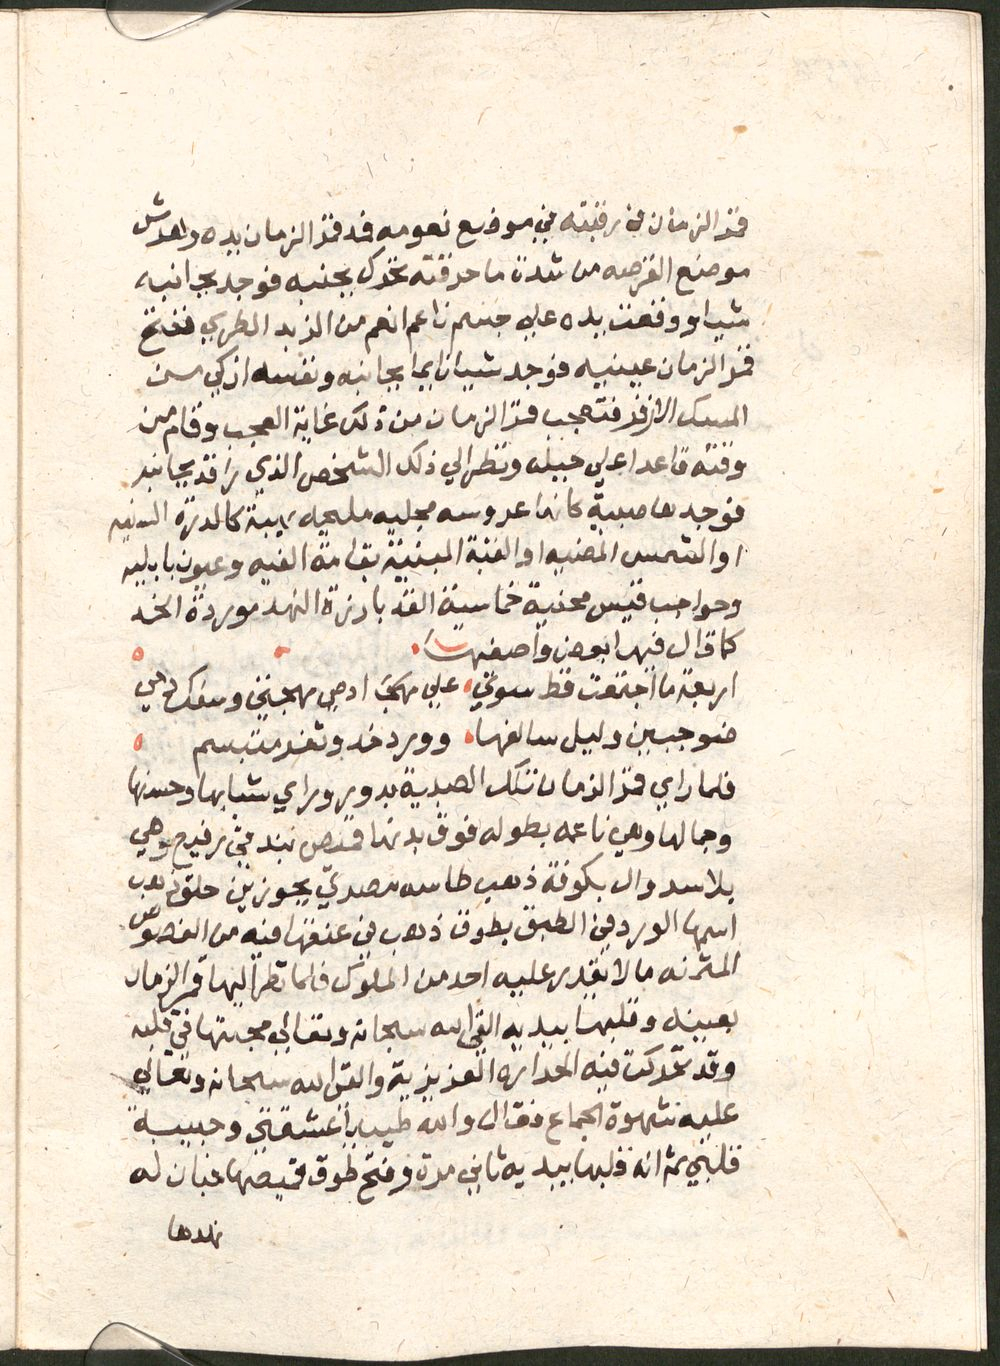 قمر الزمان في رقبته في موضع نعومه فمد قمر الزمان يده واهرش
موضع القرصه من شدة ما حرقته تحرك بجنبه فوجد بجانبه
شيا ووقعت يده علي جسم ناعم انعم من الزبد الطري ففتح
قمر الزمان عينيه فوجد شيا نايما بجانبه ونفسه ازكي من
المسك الازفر فتعجب قمر الزمان من ذلك غاية العجب وقام من
وقته قاعدا علي حيله ونظر الي ذلك الشخص الذي راقد بجانبه
فوجدها صبية كانها عروسه مجليه مليحه كالدرة السنيه
او الشمس المضيه او القبة المبنية بقامة الفيه وعيون بابليه
وحواجب قيس محنية خماسية القد بارزة النهد موردة الخد
كما قال فيها بعض واصفيها
اربعة ما اجتمعت قط سوي علي مهجتي وسفك دمي
ضو جبين وليل سالفها وورد خد وثغر مبتسم
فلما راي قمر الزمان تلك الصبية بدور وراي شبابها وحسنها
وجمالها وهي ناعمه بطوله فوق بدنها قميص بندقي رفيع وهي
بلا سروال بكوفة ذهب طاسه مصري بجوزين حلق ذهب
اسمها الورد في الطبق بطوق ذهب في عنقها فيه من الفصوص
المثمنه ما لا يقدر عليه احد من الملوك فلما نظر اليها قمر الزمان
بعينه وقلبها بيديه القي الله سبحانه وتعالي محبتها في قلبه
وقد تحركت فيه الحراره الغزيزية والقي الله سبحانه وتعالي
عليه شهوة الجماع فقال والله طيب يا عشقتي وحبيبة
قلبي ثم انه قلبها بيديه ثاني مرة وفتح طوق قميصها فبان له
نهدها